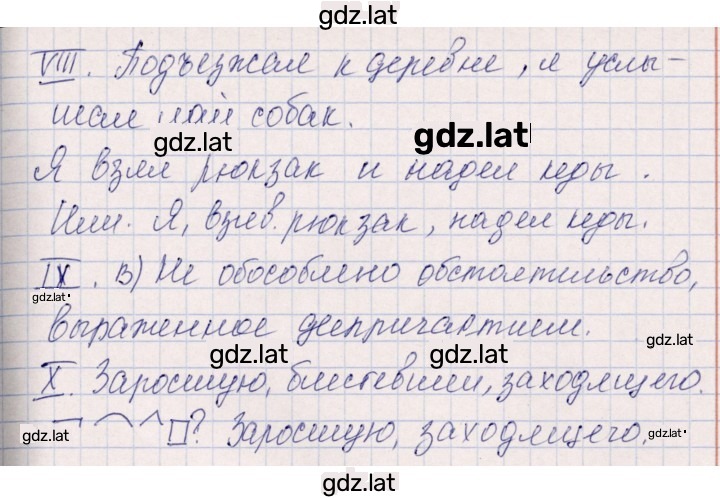 gdz.lat
VIII. Подъезжая к деревне, я услы-
шал лай собак.
gdz.lat
gdz.lat
Я взял рюкзак и надел кеды.
Или. Я, взяв рюкзак, надел кеды.
IX. В) Не обособлено обстоятельство,
gdz.lat
выраженное деепричастием.
gdz.lat
gdz.lat
gdz.lat
X. Заросшую, блестевшей, заходящего.
? Заросшую, заходящего.
gdz.lat
gdz.lat
gdz.lat